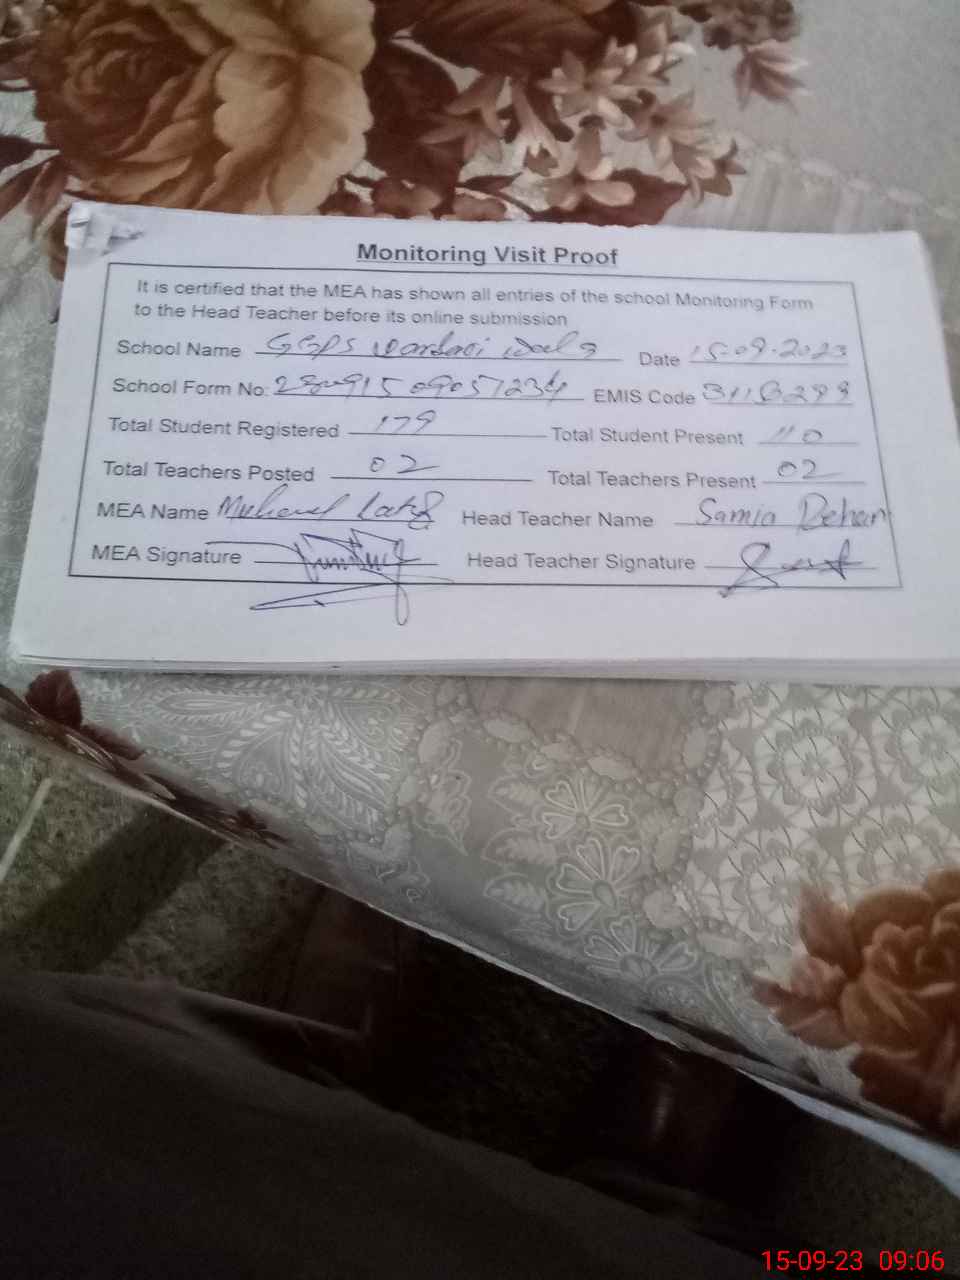 Monitoring Visit Proof
It is certified that the MEA has shown all entries of the school Monitoring Form
to the Head Teacher before its online submission
School Name GGPS Date 15-09-2023
School Form No: EMIS Code
Total Student Registered 179 Total Student Present 110
Total Teachers Posted 02 Total Teachers Present 02
MEA Name Head Teacher Name Samia
MEA Signature Head Teacher Signature
15-09-23 09:06